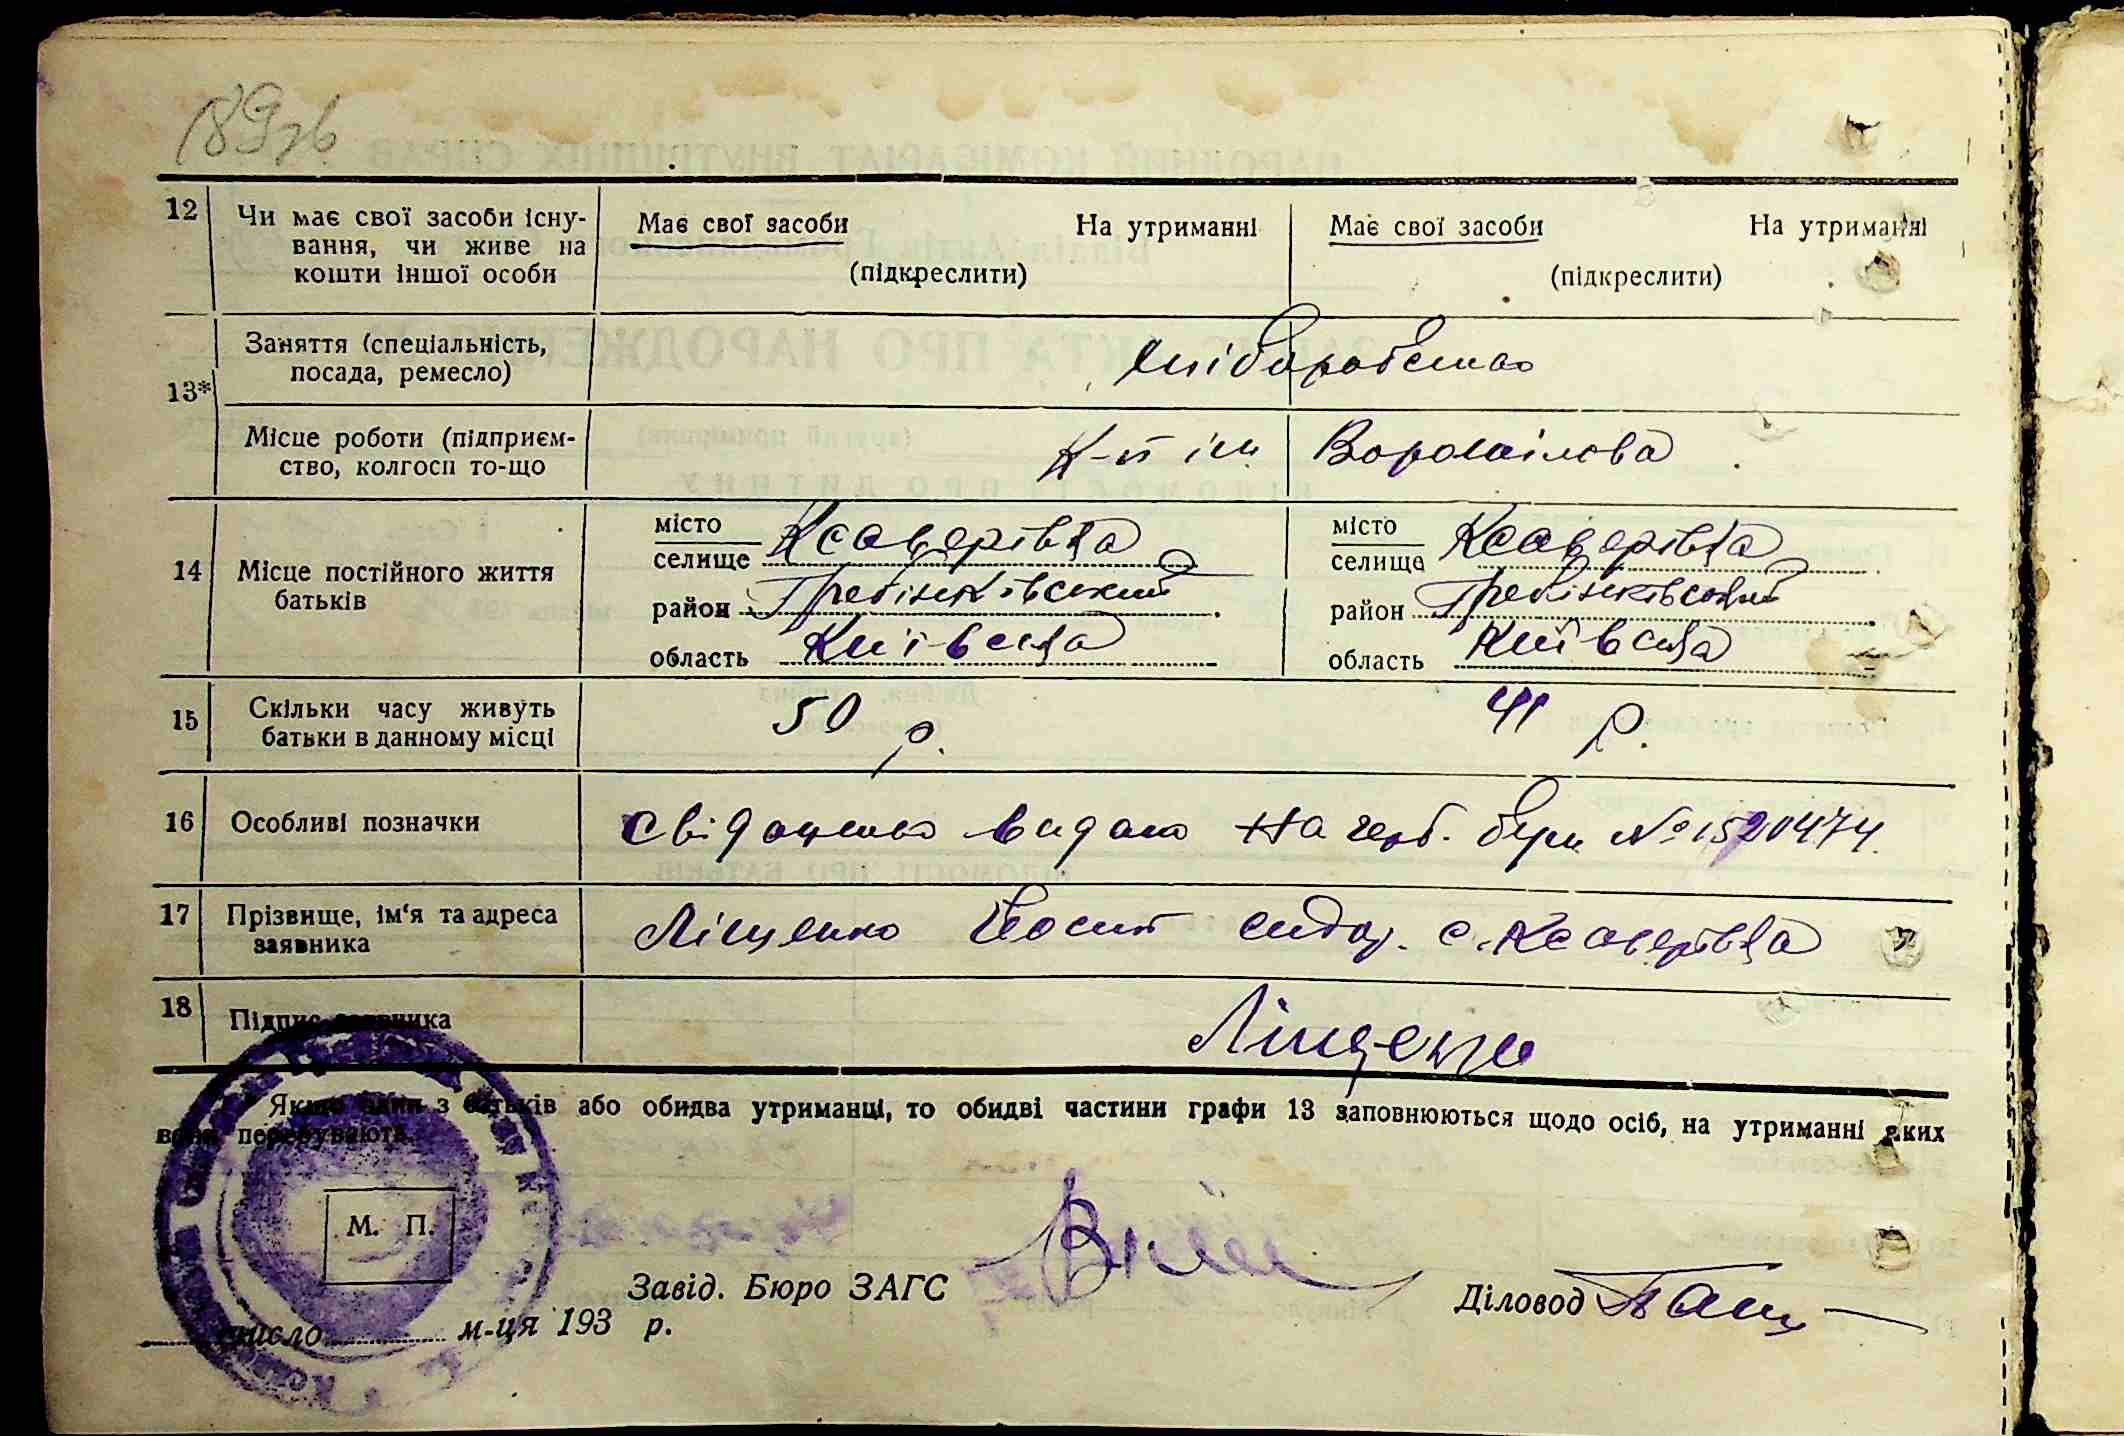 189зв
12 Чи має свої засоби існу- Має свої засоби На утриманні Має свої засоби На утриманні
вання, чи живе на
кошти іншої особи (підкреслити) (підкреслити)
Заняття (спеціальність,
посада, ремесло) хліборобство
13*
Місце роботи (підприєм- К-п ім Ворошілова
ство, колгосп то-що
місто Ксаверівка місто Ксаверівка
селище селище
14 Місце постійного життя
батьків район Гребінківський район Гребінківський
область Київська область Київська
15 Скільки часу живуть 50 р. 41 р.
батьки в данному місці
16 Особливі позначки Свідоцтво видано на герб. бум №1520474.
17 Прізвище, ім'я та адреса Ліщенко Йосип Сидор. с. Ксаверівка
заявника
18 Підпис заявника Ліщенко
* Якщо один з батьків або обидва утриманці, то обидві частини графи 13 заповнюються щодо осіб, на утриманні яких
вони перебувають.
М. П.
Завід. Бюро ЗАГС
Діловод
число м-ця 193 р.